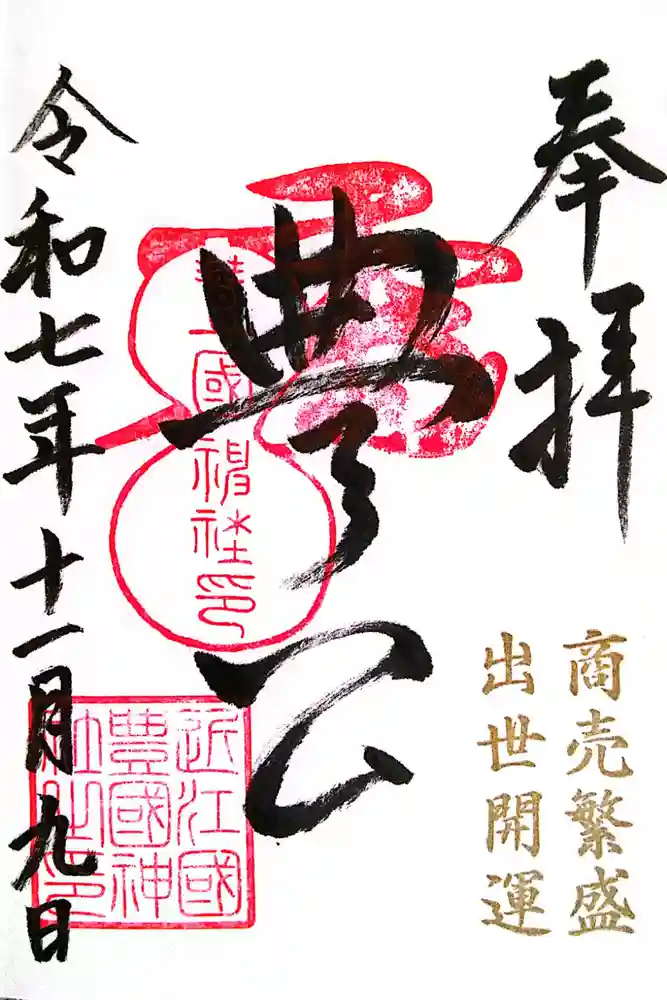 奉拝
商売繁盛
出世開運
豊公
豐國神社印
近江國
豐國神
社之印
令和七年十一月九日